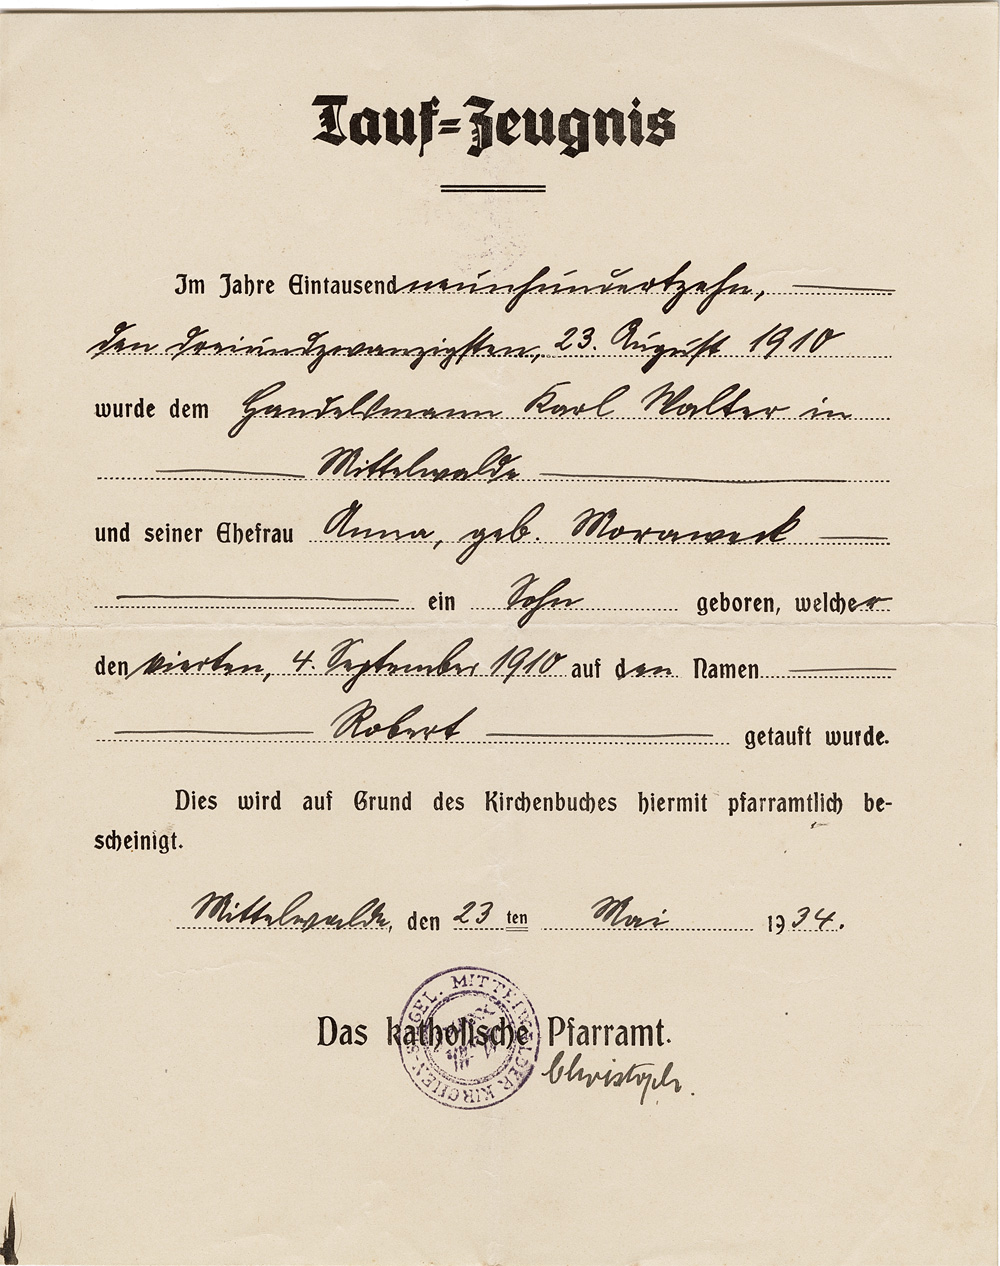 Tauf=Zeugnis
Im Jahre Eintausend neunhundertzehn,
den dreiundzwanzigsten, 23. August 1910
wurde dem Handelsmann Karl Walter in
Mittelwalde
und seiner Ehefrau Anna, geb. Moraweck
ein Sohn geboren, welcher
den vierten, 4. September 1910 auf den Namen
Robert getauft wurde.
Dies wird auf Grund des Kirchenbuches hiermit pfarramtlich be-
scheinigt.
Mittelwalde, den 23 ten Mai 1934.
Das katholische Pfarramt.
Christoph.
MITTELWALDER KIRCHEN-SIEGEL.